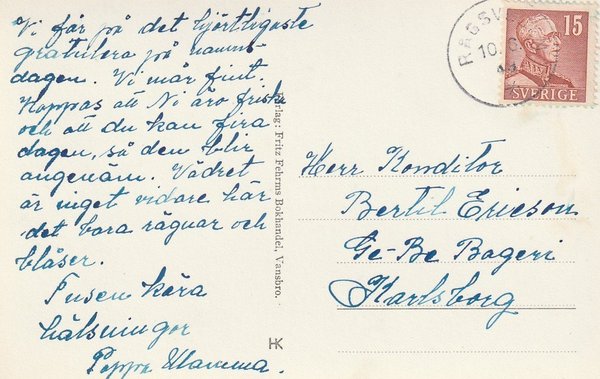 Vi får på det hjärtligaste
gratulera på namns-
dagen. Vi mår fint.
Hoppas att Ni äro friska
och att du kan fira
dagen, så den blir
angenäm. Vädret
är inget vidare här
det bara rägnar och
blåser.
Tusen kära
hälsningar
Pappa Mamma.
Förlag: Fritz Fehrms Bokhandel, Vansbro.
HK
15
SVERIGE
Herr Konditor
Bertil Ericson
Ge-Be Bageri
Karlsborg